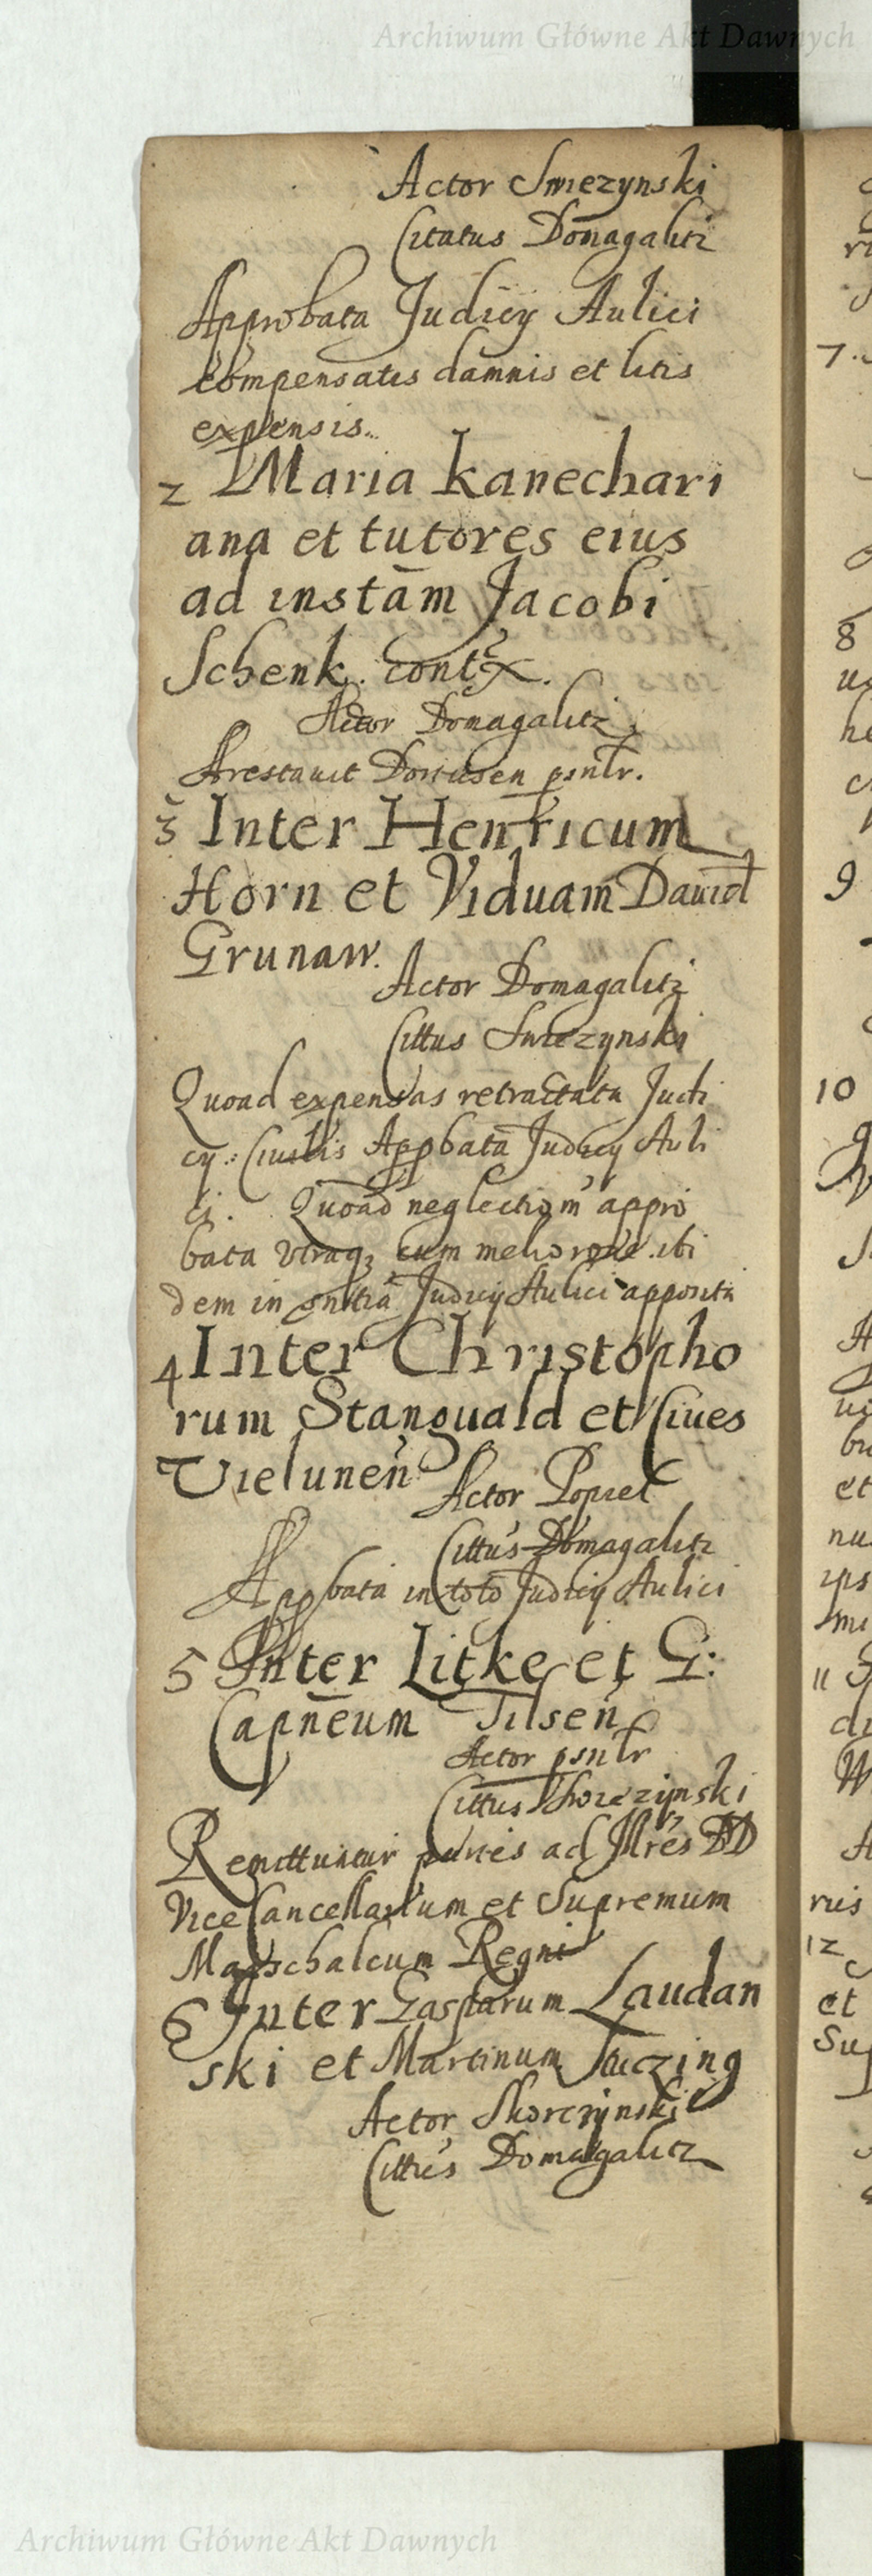 Archiwum Główne Akt Dawnych
Actor Smiezynski
Citatus Domagalitz
Approbata Judicy Aulici
compensatis damnis et litis
expensis.
2 Maria Kanechari
ana et tutores eius
ad instām Jacobi
Schenk. cont
Actor Domagalitz
Arestavit psnlr.
3 Inter Henricum
Horn et Viduam David
Grunaw.
Actor Domagalitz
Cittus
Quoad expensas retractata Judi
cy: Civilis Appbata Judicy Auli
ci. Quoad neglectiom appro
bata utraq, cum meliorone ibi
dem in sntia Judicy Aulici apposita
4 Inter Christopho
rum Stanguald et Cives
Vielunen
Actor Popiel
Cittus Domagalitz
Appbata in toto Judicy Aulici
5 Inter Litke et G:
Capnēum Tilsen
Actor psnlr
Cittus
Remittuntur partes ad Jllres DD
ViceCancellarium et Supremum
Marschalcum Regni
6 Inter Gasparum Laudan
ski et Martinum
Actor Skorczynski
Cittus Domagalitz
7.
8
9
10
11
12
et
Archiwum Główne Akt Dawnych